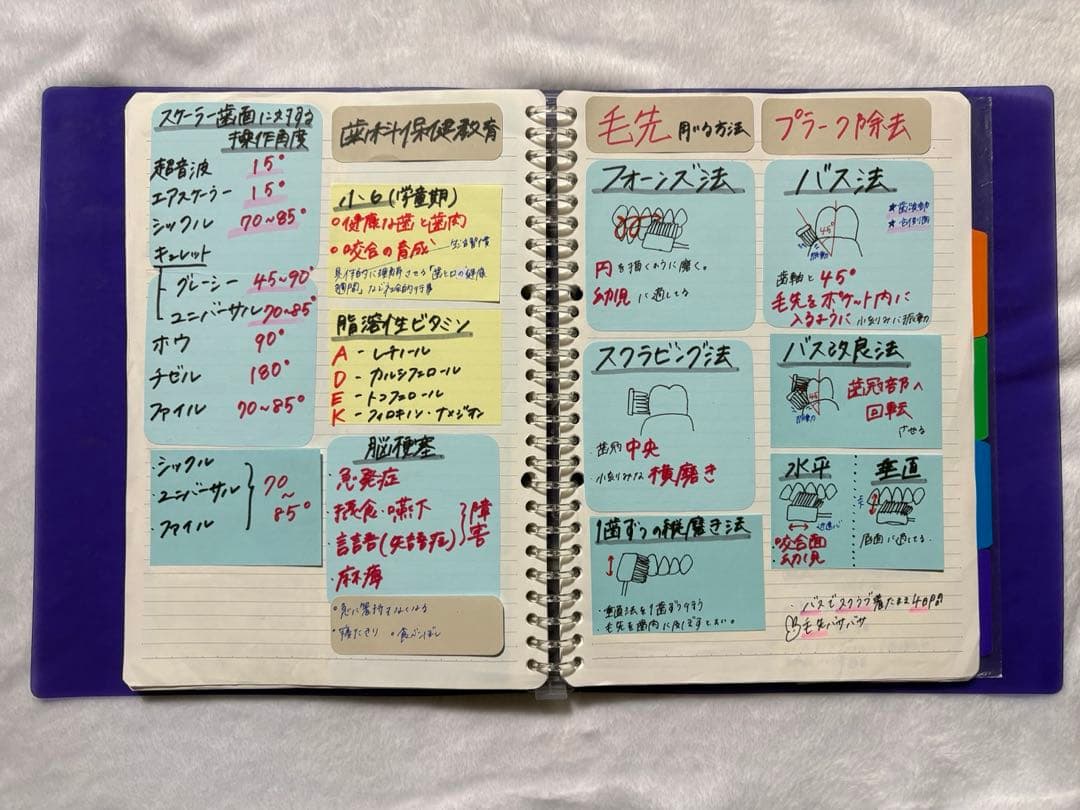 スケーラー歯面に対する
操作角度
超音波 15°
エアスケーラー 15°
シックル 70~85°
キュレット
グレーシー 45~90°
ユニバーサル 70~85°
ホウ 90°
チゼル 180°
ファイル 70~85°
・シックル
・ユニバーサル
・ファイル
70
~
85°
歯科保健教育
小6(学童期)
○健康な歯と歯肉
○咬合の育成 生活習慣
具体的に理解させる「歯と口の健康
週間」など社会的行事
脂溶性ビタミン
A - レチノール
D - カルシフェロール
E - トコフェロール
K - フィロキノン・ナメジオン
脳梗塞
・急発症
・摂食・嚥下
・言語(失語症)
障害
・麻痺
○急に箸持てなくなる
○寝たきり ○食べこぼし
毛先 用いる方法
プラーク除去
フォーンズ法
円を描くように磨く。
幼児に適してる
スクラビング法
・歯肉中央
小刻みな横磨き
1歯ずつの縦磨き法
・垂直法を1歯ずつ行う
・毛先を歯肉に
バス法
★歯周
45°
振動
歯軸と45°
毛先をポケット内に
入るように 小刻みに振動
バス改良法
45°
歯冠部へ
回転
させる
水平
・咬合面
・幼児
垂直
唇面に適してる
・バスでスクラブ着たまま4時間
毛先バサバサ